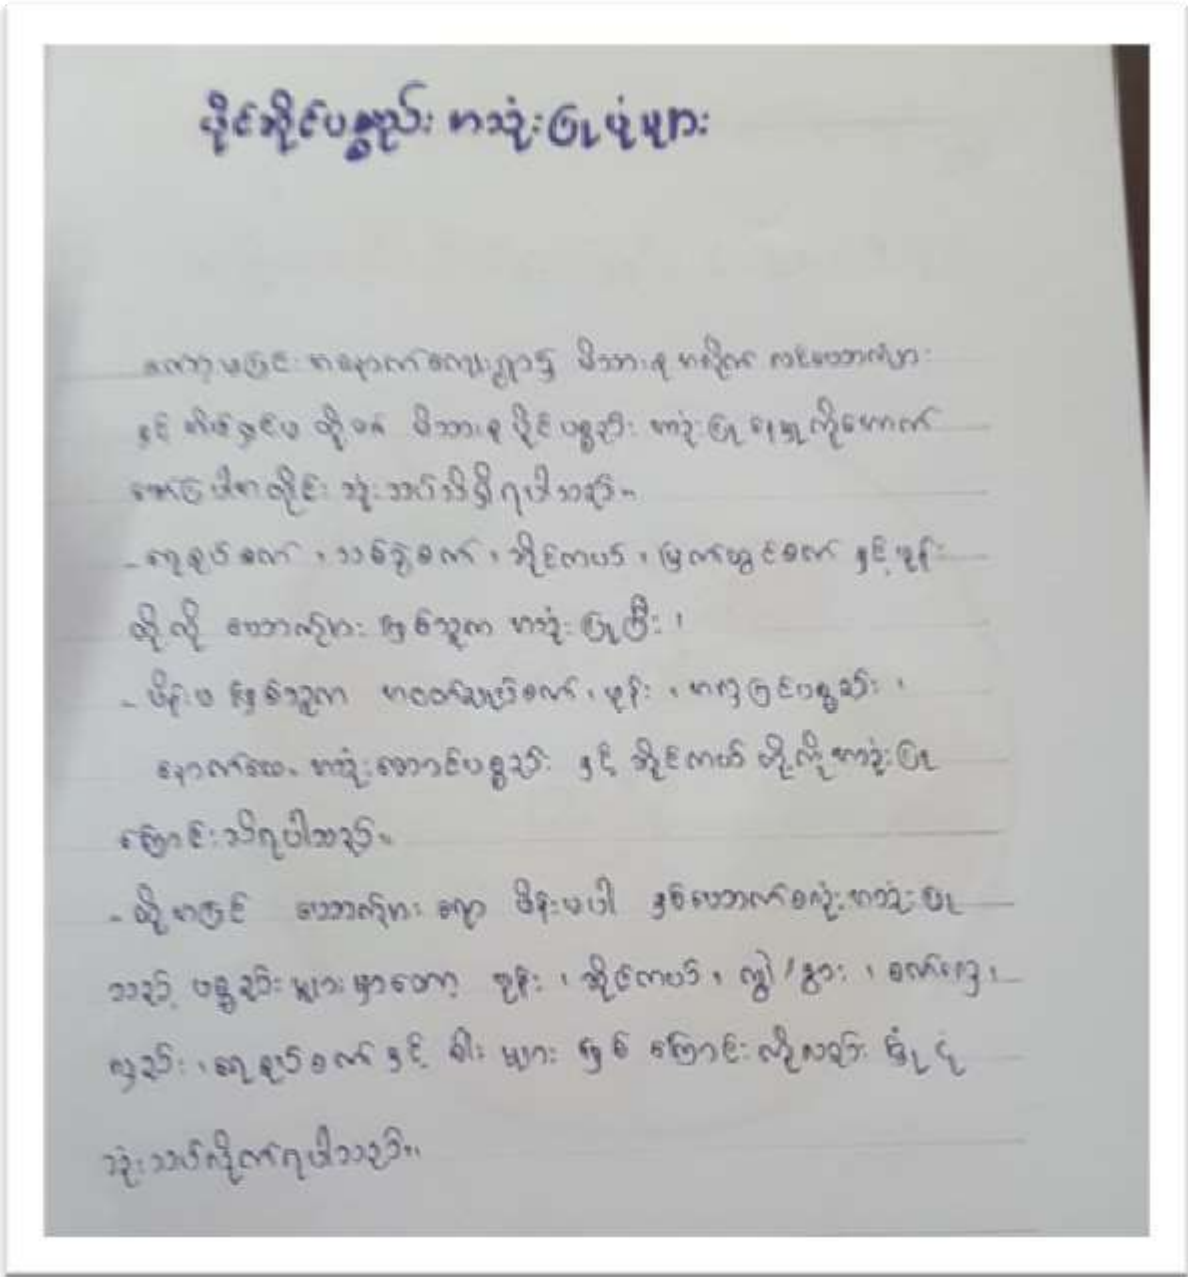 ပိုင်ဆိုင်ပစ္စည်း အသုံးပြုပုံများ
အနောက်ကျေးရွာ၌ မိသားစုအလိုက်
နှင့် မိသားစုပိုင်ပစ္စည်း အသုံးပြုနေမှုကိုအောက်
ဖော်ပြပါအတိုင်း သုံးသပ်သိရှိရပါသည်။
- ရေစုပ်စက် ၊ သစ်ခွဲစက် ၊ ဆိုင်ကယ် ၊ မြက်ယွင်စက် နှင့် ဖုန်း
တို့ကို ယောက်ျား ဖြစ်သူက အသုံးပြုပြီး ၊
- မိန်းမ ဖြစ်သူက အဝတ်လျှော်စက် ၊ ဖုန်း ၊ အလှပြင်ပစ္စည်း ၊
အသုံးအဆောင်ပစ္စည်း နှင့် ဆိုင်ကယ် တို့ကိုအသုံးပြု
ကြောင်းသိရပါသည်။
- ထို့အပြင် ယောက်ျား ရော မိန်းမပါ နှစ်ယောက်စလုံးအသုံးပြု
သည့် ပစ္စည်းများမှာတော့ ဖုန်း ၊ ဆိုင်ကယ် ၊ ကျွဲ/နွား ၊ စက်လှေ ၊
လှည်း ၊ ရေစုပ်စက် နှင့် ဓါး များ ဖြစ် ကြောင်းကိုလည်း ခြုံငုံ
သုံးသပ်လိုက်ရပါသည်။